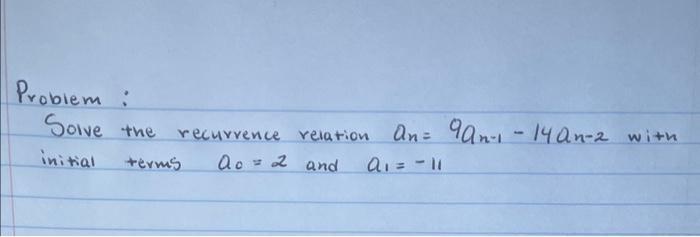 Problem :
Solve the recurrence relation an= 9an-1 - 14an-2 with
initial terms a0 = 2 and a1 = -11